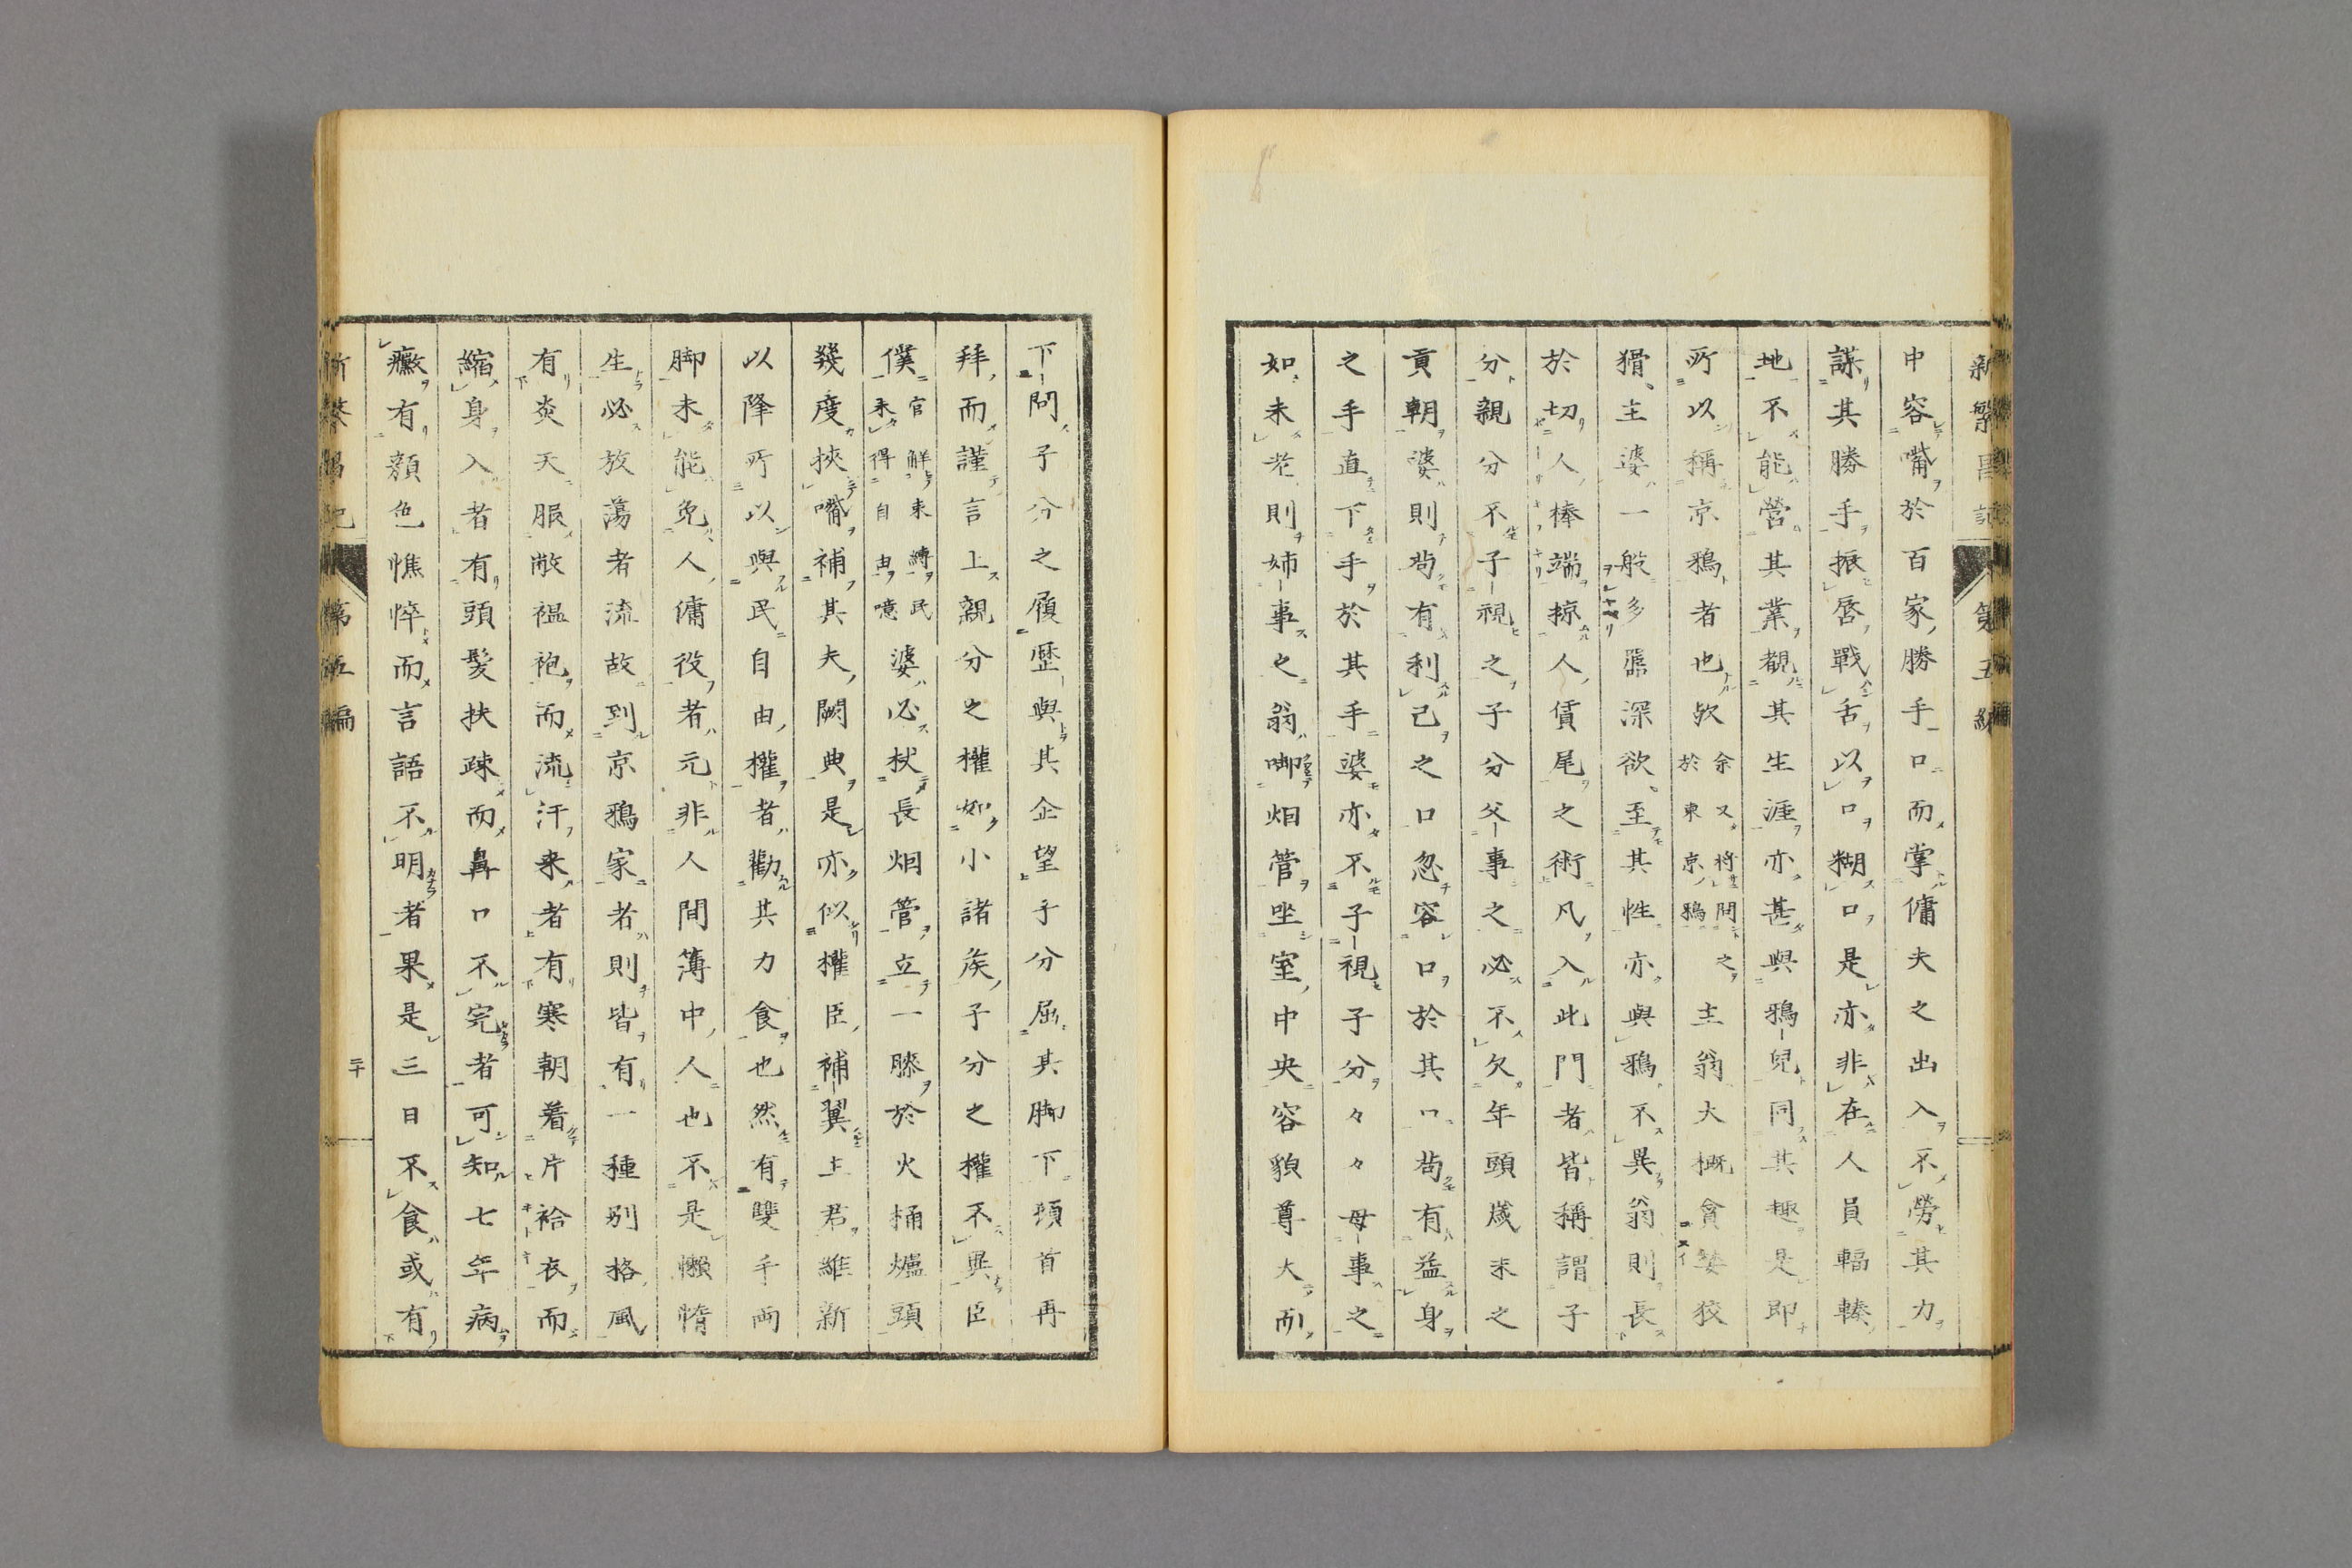 新繁昌記 第五編
中容嘴於百家勝手口而掌傭夫之出入不勞其力
謀其勝手振唇戰舌以口糊口是亦非在人員輻輳
地不能營其業覩其生涯亦甚與鴉兒同其趣是即
所以稱京鴉者也歟余又将問之於東京鴉主翁大概貪婪狡
猾主婆一般多𡚁深欲至其性亦與鴉不異翁則長
於切人棒端掠人賃尾之術凡入此門者皆稱謂子
分親分不子視之子分父事之必不欠年頭歳末之
貢朝婆則苟有利己之口忽容口於其口苟有益身
之手直下手於其手婆亦不子視子分々々母事之
如未老則姉事之翁啣烟管坐室中央容貌尊大而
下問子分之履歴與其企望子分屈其脚下頓首再
拜而謹言上親分之權如小諸侯子分之權不異臣
僕官解束縛民未得自由噫婆必杖長烟管立一膝於火桶爐頭
幾度挾嘴補其夫闕典是亦似權臣補翼上君維新
以降所以與民自由權者勸其力食也然有雙手両
脚未能免人傭役者元非人間簿中人也不是懶惰
生必放蕩者流故到京鴉家者則皆有一種別格風
有炎天服敝褞袍而流汗来者有寒朝着片袷衣而
縮身入者有頭髪扶疎而鼻口不完者可知七年病
癥有顔色憔悴而言語不明者果是三日不食或有
新繁昌記 第五編 二十